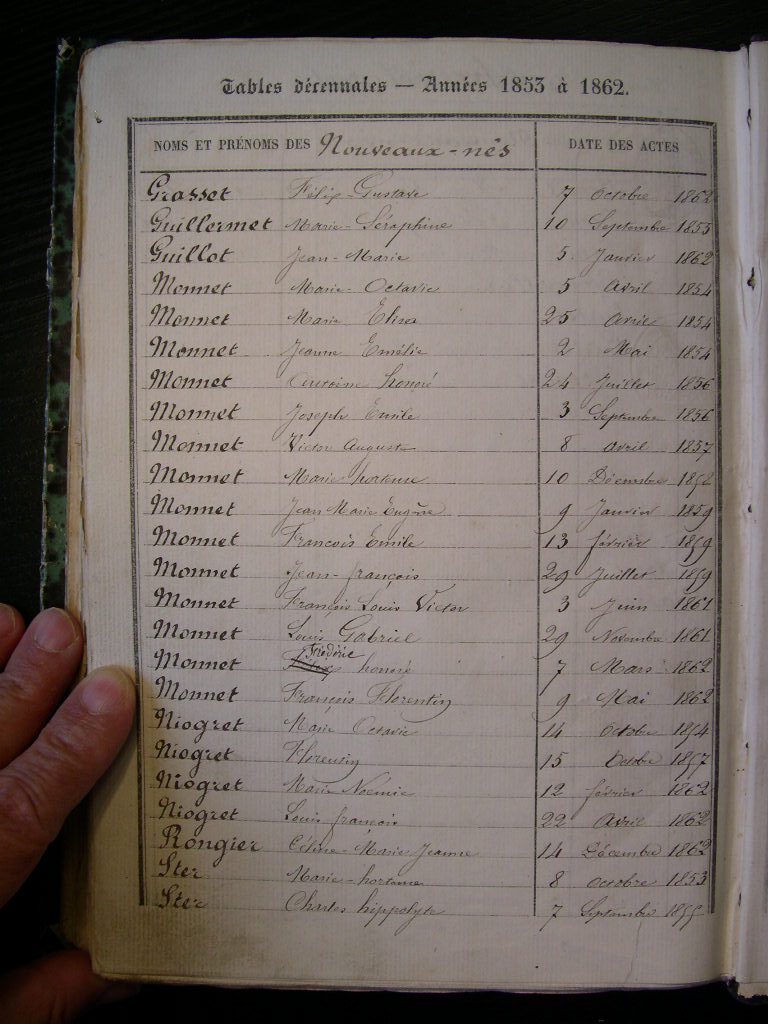 Tables décennales — Années 1853 à 1862.
NOMS ET PRÉNOMS DES Nouveaux-nés DATE DES ACTES
Grasset Félix-Gustave 7 Octobre 1862
Guillermet Marie-Séraphine 10 Septembre 1855
Guillot Jean-Marie 5 Janvier 1862
Monnet Marie-Octavie 5 Avril 1854
Monnet Marie Elisa 25 Avril 1854
Monnet Jeanne Emélie 2 Mai 1854
Monnet Antoine honoré 24 Juillet 1856
Monnet Joseph Emile 3 Septembre 1856
Monnet Victor Auguste 8 avril 1857
Monnet Marie hortense 10 Décembre 1858
Monnet Jean Marie Eugène 9 Janvier 1859
Monnet François Emile 13 février 1859
Monnet Jean-françois 29 Juillet 1859
Monnet François Louis Victor 3 Juin 1861
Monnet Louis Gabriel 29 Novembre 1861
Monnet Frédéric honoré 7 Mars 1862
Monnet François Florentin 9 Mai 1862
Niogret Marie Octavie 14 Octobre 1854
Niogret Florentin 15 Octobre 1857
Niogret Marie Noémie 12 février 1862
Niogret Louis françois 22 Avril 1862
Rongier Céline-Marie Jeanne 14 Décembre 1862
Ster Marie-hortense 8 Octobre 1853
Ster Charles hippolyte 7 Septembre 1855